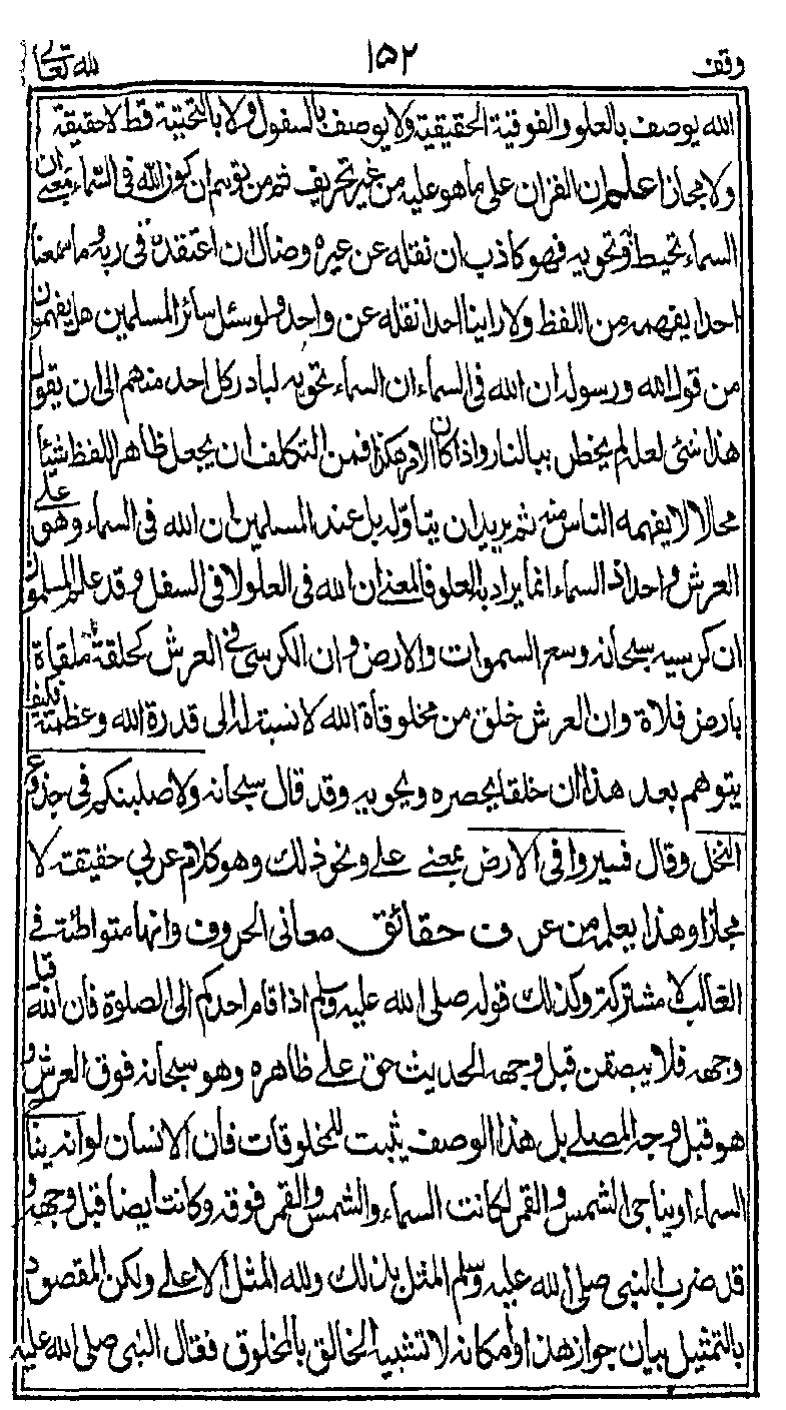 وقف ١٥٢ لله تعالى
الله يوصف بالعلو والفوقية الحقيقية ولا يوصف بالسفول ولا بالتحتية قط لا حقيقة
ولا مجازا علم ان القران على ما هو عليه من غير تحريف ثم من توهم ان كون الله فى السماء بمعنى ان
السماء تحيط وتحويه فهو كاذب ان نقله عن غيره وضال ان اعتقده فى ربه وما سمعنا
احدا يفهمه من اللفظ ولا راينا احدا نقله عن واحد ولو سئل سائر المسلمين هل يفهمون
من قول الله ورسوله ان الله فى السماء ان السماء تحويه لبادر كل احد منهم الى ان يقول
هذا شئ لعله لم يخطر ببالنا واذا كان الامر هكذا فمن التكلف ان يجعل ظاهر اللفظ شيئا
محالا لا يفهمه الناس منه ثم يريد ان يتاوله بل عند المسلمين ان الله فى السماء وهو على
العرش واحد اذ السماء انما يراد به العلو فالمعنى ان الله فى العلو لا فى السفل وقد علم المسلمون
ان كرسيه سبحانه وسع السموات والارض وان الكرسى فى العرش كحلقة ملقاة
بارض فلاة وان العرش خلق من مخلوقاة الله لا نسبة له الى قدرة الله وعظمته فكيف
يتوهم بعد هذا ان خلقا يحصره ويحويه وقد قال سبحانه ولاصلبنكم فى جذوع
النخل وقال فسيروا فى الارض بمعنى على ونحو ذلك وهو كلام عربي حقيقة لا
مجازا وهذا يعلمه من عرف حقائق معانى الحروف وانها متواطئة فى
الغالب لا مشتركة وكذلك قوله صلى الله عليه وسلم اذا قام احدكم الى الصلوة فان الله قبل
وجهه فلا يبصقن قبل وجهه الحديث حق على ظاهره وهو سبحانه فوق العرش و
هو قبل وجه المصلى بل هذا الوصف يثبت للمخلوقات فان الانسان لو انه يناجى
السماء او يناجى الشمس والقمر لكانت السماء والشمس والقمر فوقه وكانت ايضا قبل وجهه و
قد ضرب النبى صلى الله عليه وسلم المثل بذلك ولله المثل الاعلى ولكن المقصود
بالتمثيل بيان جواز هذا وامكانه لا تشبيه الخالق بالمخلوق فقال النبى صلى الله عليه